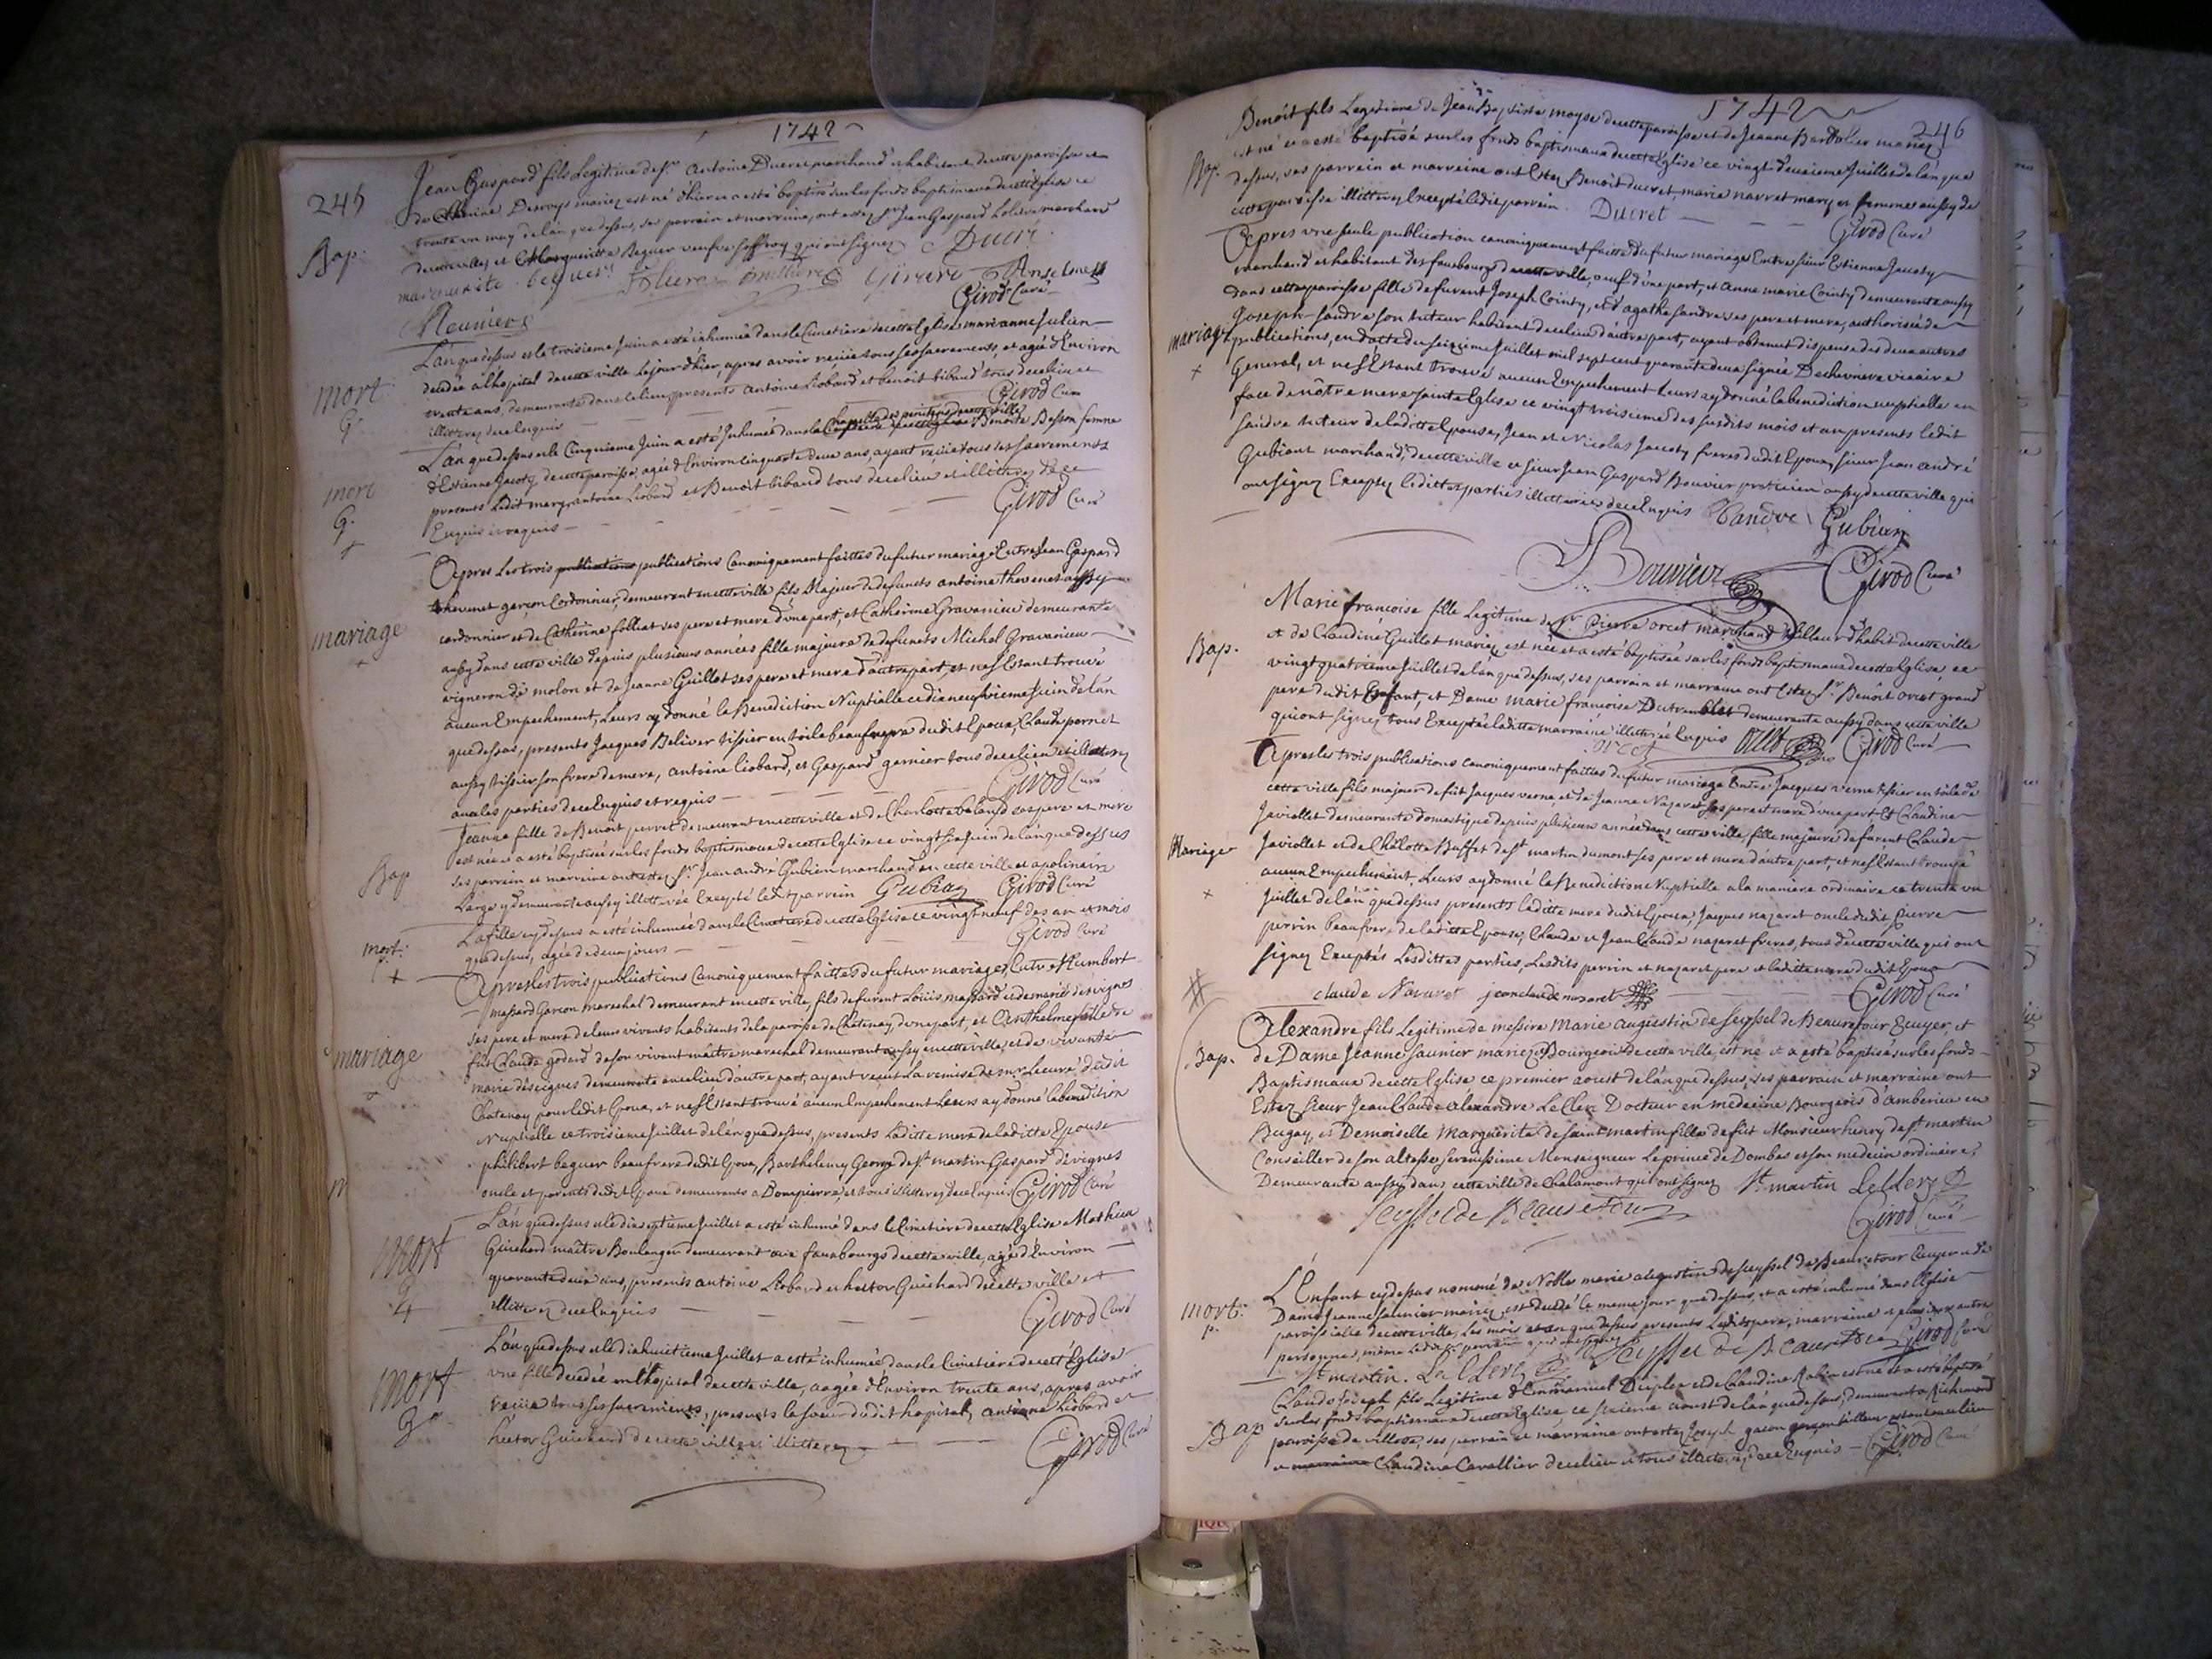 1742
245
Bap.
Jean Gaspard fils Legitime de Sr. Antoine Ducret marchand et habitant decette paroisse et
de Desroys mariez est né d'hier et a esté baptisé sur les fonds baptismaux decette Eglise ce
trente un may de lan que dessus, ses parrain et marraine, ont estez Sr. Jean Gaspard marchand
decette ville, et Marguerite Beguer veufve Joffroy qui ont signez Ducret
marguerite beguer Girard Anselme
Girod Curé
mort
G.
Lan que dessus et le troisieme Juin a esté inhumée dans le Cimetiere decette Eglise marianne Julien
decedée a lhopital decette ville le jour d'hier, apres avoir reciie tous ses sacrements, et agée d'Environ
trente ans, demeurante dans ce lieu, presents Antoine Liobard et benoit bibaud tous de ce lieu et
illitterez de ce enquis Girod Curé
mort
G.
+
chapelle des penitens decette ville
Lan que dessus et le Cinquieme Juin a esté Inhumée dans la Benoite Besson femme
d'Estienne Jacoty decette paroisse, agée d'Environ cinquante deux ans, ayant reciie tous ses sacrements
presents Ledit mary, antoine Liobard et Benoit bibaud tous de ce lieu et illitterez de ce
Enquis et requis Girod Curé
mariage
+
Apres Les trois publications publications Canoniquement faittes du futur mariage Entre Jean Gaspard
thevenet garçon Cordonnier, demeurant en cette ville fils Majeur de defuncts antoine thevenet aussy
cordonnier et de Catherine folliat ses pere et mere d'une part, et Catherine Gravanieu demeurante
aussy dans cette ville depuis plusieurs années fille majeure de defuncts Michel Gravanieu
vigneron de molon et de Jeanne Guillot ses pere et mere d'autre part, et ne s'Estant trouvé
aucun Empechement, Leurs ay donné la Benediction Nuptialle ce dixneufvieme Juin de lan
que dessus, presents Jacques Belivet tissier en toile beaufrere dudit Epoux, Claude pornet
aussy tissier son frere de mere, antoine liobard, et Gaspard garnier tous de ce lieu et illitterez
avec les parties de ce Enquis et requis Girod Curé
Bap
Jeanne fille de Benoit perret demeurant en cette ville et de Charlotte baland ses pere et mere
est née et a esté baptisée sur les fonds baptismaux decette Eglise ce vingt six Juin de lan que dessus
ses parrain et marraine ont estez Sr. Jean andré Gubien marchand en cette ville et apolinaire
Large y demeurante aussy illitterée Excepté ledt parrein Gubian Girod Curé
mort.
+
La fille cy dessus a esté inhumée dans le Cimetiere decette Eglise ce vingt neuf des an et mois
que dessus, agée de deux jours Girod Curé
mariage
+
Apres les trois publications Canoniquement faittes du futur mariages, Entre Humbert
massard Garcon marechal demeurant en cette ville, fils defurent Loüis massard et de marie desvignes
ses pere et mere de leurs vivants habitants de la paroisse de Chatenay, d'une part, et Anthelmette fille de
fût Claude godard de son vivant maitre marechal demeurant aussy en cette ville, et de vivante
marie desvignes demeurante en ce lieu d'autre part, ayant recüt La remise de mr. Lecuré dudit
Chatenay pour ledit Epoux, et ne s'Estant trouvé aucun Empechement Leurs ay donné la benediction
Nuptialle ce troisieme Juillet de lan que dessus, presents Laditte mere de laditte Epouse
philibert beguer beaufrere dudit Epoux, Barthelemy George de St. martin, Gaspard devignes
oncle et parents dudit Epoux demeurants a Dompierre et tous illitterez de ce Enquis Girod Curé
mort
Lan que dessus et le dix septieme Juillet a esté inhumé dans le Cimetiere decette Eglise Mathieu
Guichard maitre Boulanger demeurant aux fauxbourgs decette ville, agé d'Environ
quarante deux ans, presents antoine Liobard et hector Guichard de cette ville et
illitterez de ce Enquis Girod Curé
mort
Lan que dessus et le dix huitieme Juillet a esté inhumée dans le Cimetiere decett Eglise
une fille decedée en lhopital decette ville, aagée d'Environ trente ans, apres avoir
reciie tous ses sacrements, presents la soeur dudit hopital, antoine Liobard et
hector Guichard de cette ville et illitterez Girod Curé
1742
246
Bap.
Benoit fils Legitime de Jean Baptiste moyse decette paroisse et de Jeanne mariez
est né et a esté baptisé sur les fonds baptismaux decette Eglise ce vingt deuxieme Juillet de lan que
dessus, ses parrein et marreine ont Estez Benoit ducret, marie navret mary et femme aussy de
cette paroisse illitterez Excepté ledit parrein Ducret Girod Curé
mariage
+
Apres une seule publication canoniquement faitte du futur mariage Entre sieur Estienne Jacoty
marchand et habitant des fauxbourgs decette ville, veuf d'une part, et anne marie Cointy demeurante aussy
dans cette paroisse fille de furent Joseph Cointy, et d'agathe sandre ses pere et mere, authorisée de
Joseph sandre son tuteur habitant de ce lieu d'autre part, ayant obtenut dispense des deux autres
publications, en datte du seizieme Juillet mil sept cent quarante deux signée Dechevriere vicaire
General, et ne s'Estant trouvé aucun Empechement Leurs ay donné la benediction nuptialle en
face de nôtre mere sainte Eglise ce vingt troisieme des susdits mois et an presents ledit
sandre tuteur de laditte Epouse, Jean et Nicolas Jacoty freres dudit Epoux, sieur Jean andré
Gubiant marchand decette ville et sieur Jean Gaspard Bouvier praticien aussy decette ville qui
ont signez Exceptez leditte parties illitterées de ce Enquis Sandre Gubian
Bouvier Girod Curé
Bap.
Marie francoise fille Legitime de Sr. Pierre orcet marchand tailleur d'habit decette ville
et de Claudine Guillot mariez est née et a esté baptisée sur les fonds baptismaux decette Eglise, ce
vingt quatrieme Juillet de lan que dessus, ses parrain et marraine ont Estez Sr. Benoit orcet grand
pere dudit Enfant, et Dame Marie francoise Dutremblet demeurante aussy dans cette ville
qui ont signez tous Excepté laditte marraine illitterée Enquis orcet orcet Girod Curé
Mariage
+
Apres les trois publications canoniquement faittes du futur mariage Entre Jacques verne tissier en toile de
cette ville fils majeur de fût Jacques verne et de Jeanne Nazaret ses pere et mere d'une part Et Claudine
Javiollet demeurante domestique depuis plusieurs année dans cette ville, fille majeure de furent Claude
Javiollet et de Chilotte Buffet de St. martin dumont ses pere et mere d'autre part, et ne s'Estant trouvé
aucun Empechement, Leurs ay donné la Benediction Nuptialle a la maniere ordinaire ce trente un
Juillet de lan que dessus presents laditte mere dudit Epoux, Jacques nazaret oncle dudit, Pierre
perrin beaufrere de laditte Epouse, Claude et Jean Claude nazaret freres, tous decette ville qui ont
signez Exceptés Lesdittes parties, Lesdits perrin et nazaret pere et laditte mere dudit Epoux
claude Navaret jean claude nazaret Girod Curé
Bap.
Alexandre fils Legitime de messire Marie augustin de seyssel de Beauretour Ecuyer, et
de Dame Jeanne saunier mariez Bourgeois de cette ville, est né et a esté baptisé sur les fonds
Baptismaux decette Eglise ce premier aoust de lan que dessus, ses parrain et marraine ont
Estez sieur Jean Claude alexandre Le Clerc Docteur en medecine Bourgeois d'amberieu en
Bugey, et Demoiselle Marguerite de saint martin fille de fût Monsieur henry de st martin
Conseiller de son altesse serenissime Monseigneur Le prince de Dombes et son medecin ordinaire,
Demeurante aussy dans cette ville de Chalamont qui ont signez St. martin LeClerc
seyssel de Beauretour Girod Curé
mort.
p.
L'Enfant cy dessus nommé de Noble marie augustin de seyssel de Beauretour Ecuyer et de
Dame Jeanne saunier mariez est decedé le meme jour que dessus, et a esté inhumé dans l'Eglise
paroissialle decette ville, Les mois et an que dessus presents Ledit pere, marraine et plusieurs autres
personnes, même ledit sr. parrain qui ont signez
St martin. LeClerc Seyssel de Beauretour Girod Curé
Bap
Claude Joseph fils Legitime d'Emmanuel Duplex et de Claudine est né et a esté baptisé
sur les fonds baptismaux decette Eglise ce sixieme aoust de lan que dessus, demeurant a Richemond
paroisse de villette, ses parrain et marraine ont estez Joseph garçon tailleur
et Claudine Cavallier de ce lieu et tous illitterez de ce Enquis Girod Curé